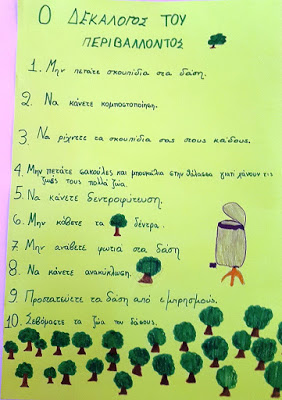 Ο ΔΕΚΑΛΟΓΟΣ ΤΟΥ
ΠΕΡΙΒΑΛΛΟΝΤΟΣ
1. Μην πετάτε σκουπίδια στα δάση.
2. Να κάνετε κομποστοποίηση.
3. Να ρίχνετε τα σκουπίδια σας στους κάδους.
4. Μην πετάτε σακούλες και μπουκάλια στην θάλασσα γιατί χάνουν τις
ζωές τους πολλά ζώα.
5. Να κάνετε δεντροφύτευση.
6. Μην κόβετε τα δέντρα.
7 Μην ανάβετε φωτιά στα δάση
8. Να κάνετε ανακύκλωση.
9. Προστατέψτε τα δάση από εμπρησμούς.
10. Σεβόμαστε τα ζώα του δάσους.